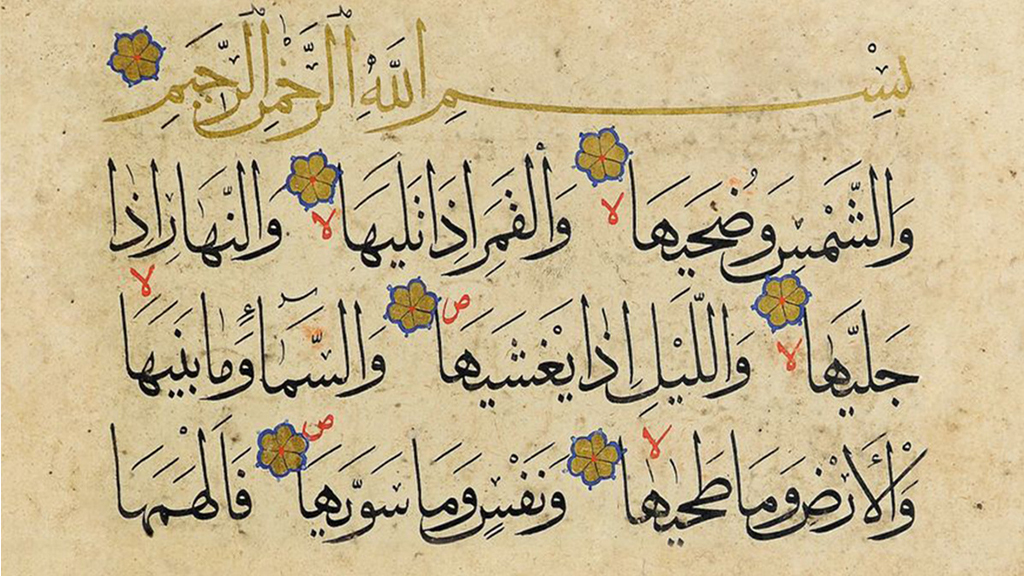 بِسْمِ اللَّهِ الرَّحْمٰنِ الرَّحِيمِ
وَالشَّمْسِ وَضُحَيهَا لا وَالْقَمَرِ اِذَا تَلَيهَا لا وَالنَّهَارِ اِذَا
جَلَّيهَا لا وَاللَّيْلِ اِذَا يَغْشَيهَا ص وَالسَّمَاءِ وَمَا بَنَيهَا لا
وَالْاَرْضِ وَمَا طَحَيهَا لا وَنَفْسٍ وَمَا سَوَّيهَا ص فَاَلْهَمَهَا